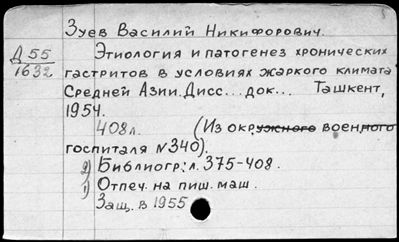 Зуев Василий Никифорович.
Д 55
1632
Этиология и патогенез хронических
гастритов в условиях жаркого климата
Средней Азии. Дисс... док... Ташкент,
1954.
408л. (Из окружного военного
госпиталя №340).
2) Библиогр: л. 375-408.
1) Отпеч. на пиш. маш.
Защ. в 1955